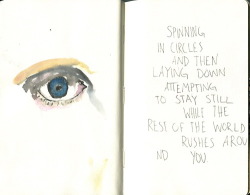 SPINNING
IN CIRCLES
AND THEN
LAYING DOWN
ATTEMPTING
TO STAY STILL
WHILE THE
REST OF THE WORLD
RUSHES AROU
ND YOU